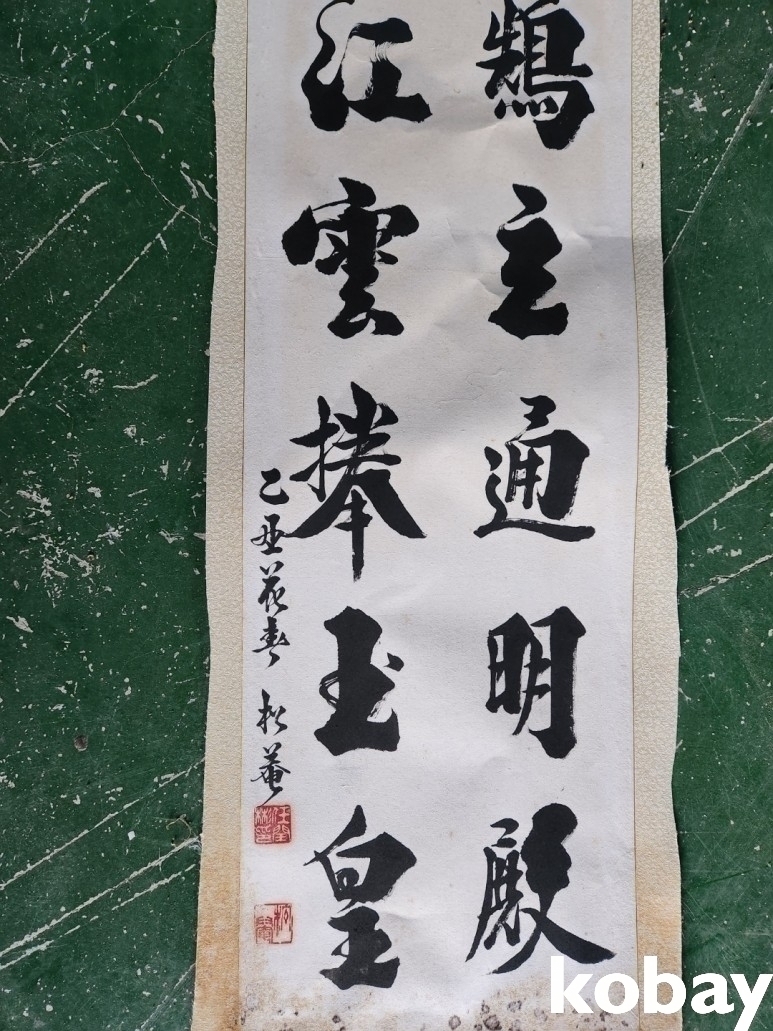 鵠立通明殿
紅雲捧玉皇
乙丑花春 松菴
kobay